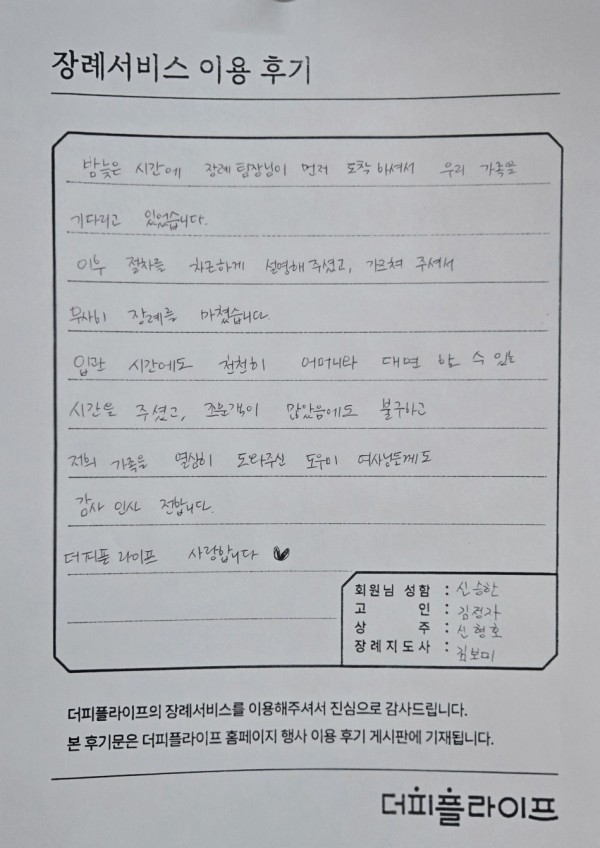 장례서비스 이용 후기
밤늦은 시간에 장례 팀장님이 먼저 도착 하셔서 우리 가족을
기다리고 있었습니다.
이후 절차를 차근하게 설명해 주셨고, 가르쳐 주셔서
무사히 장례를 마쳤습니다.
입관 시간에도 천천히 어머니와 대면 할 수 있는
시간을 주셨고, 조문객이 많았음에도 불구하고
저희 가족을 열심히 도와주신 도우미 여사님들께도
감사 인사 전합니다.
더피플 라이프 사랑합니다
회원님 성함 : 신승한
고 인 : 김정자
상 주 : 신형호
장례지도사 : 보미
더피플라이프의 장례서비스를 이용해주셔서 진심으로 감사드립니다.
본 후기문은 더피플라이프 홈페이지 행사 이용 후기 게시판에 기재됩니다.
더피플라이프